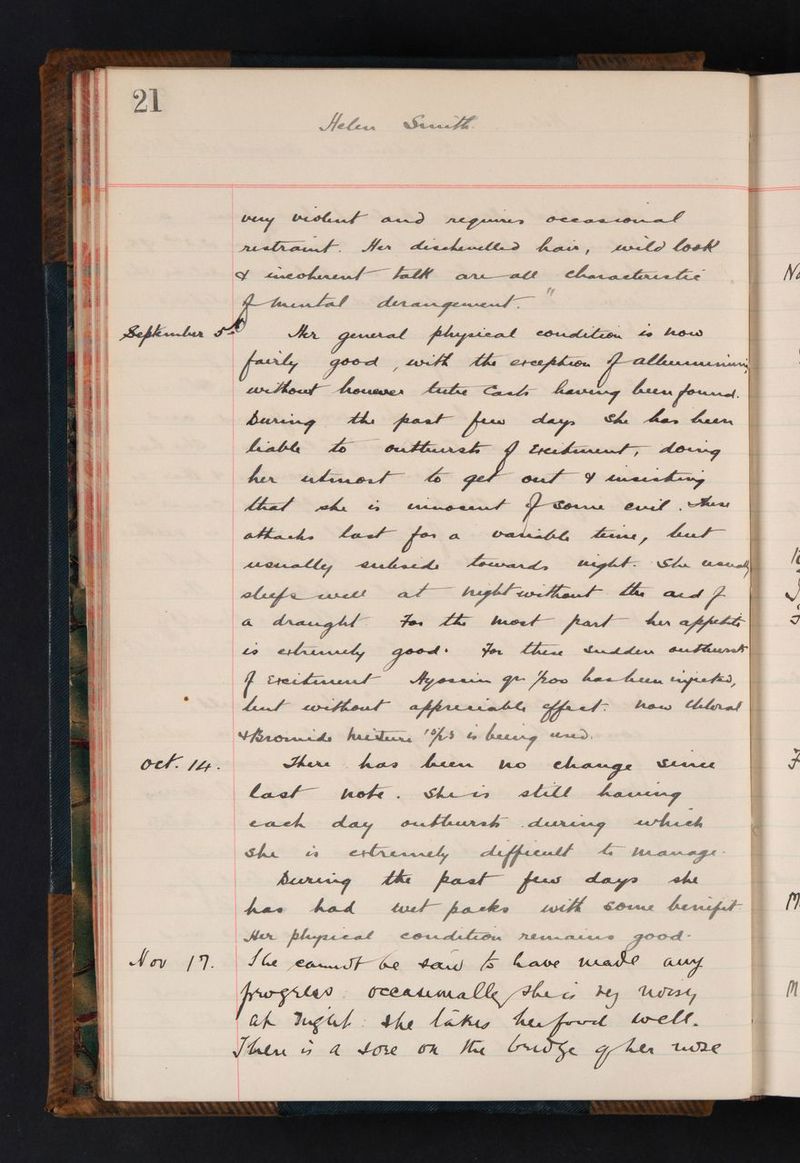 21
Helen Smith
very violent and requires occasional
restraint. Her dischevelled hair, wild look
& incoherent talk are all characteristic
of mental derangement."
September 5th Her general physical condition is now
fairly good, with the exception of
without however tube casts having been found.
During the past few days she has been
liable to outbursts of excitment, doing
her utmost to get out & insisting
that she is innocent of some evil. These
attacks last for a variable time, but
usually subside towards night. She usually
sleeps well at night without the aid of
a draught. For the most part her appetite
is extremely good. For these sudden outbursts
of excitment Hyoscin gr 1/200 has been injected,
but without appreciable effect. Now Chloral
& Bromide mixture is being used.
Oct. 14. There has been no change since
last note. She is still having
each day outbursts during which
she is extremely difficult to manage.
During the past few days she
has had wet packs with some benefit.
Her physical condition remains good.
Nov 17. She cannot be said to have made any
progress. occasionally she is very noisy
at night. She takes her food well.
There is a sore on the bridge of her nose